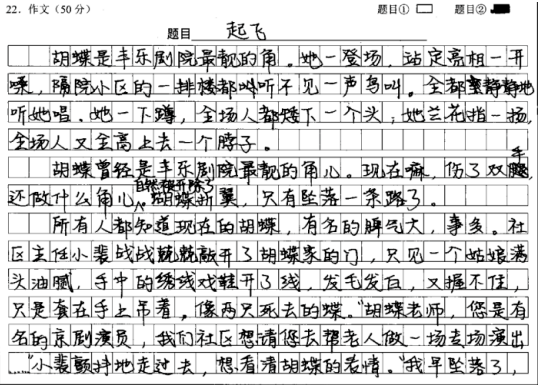 22. 作文（50分） 题目① 题目②
题目 起飞
胡蝶是丰乐剧院最靓的角。她一登场，站定亮相一开
嗓，隔院小区的一排楼都听不见一声鸟叫。全都静静地
听她唱。她一下蹲，全场人都矮下一个头；她兰花指一扬，
全场人又全高上去一个脖子。
胡蝶曾经是丰乐剧院最靓的角儿。现在嘛，伤了双手
还做什么角儿，自然被开除了。胡蝶折翼，只有坠落一条路了。
所有人都知道现在的胡蝶，有名的脾气大，事多。社
区主任小裴战战兢兢敲开了胡蝶家的门，只见一个姑娘满
头油腻，手中的绣线戏鞋开了线，发毛发白，又握不住，
只是套在手上吊着。像两只死去的蝶。“胡蝶老师，您是有
名的京剧演员，我们社区想请您去帮老人做一场专场演出
……”小裴颤抖地走过去，想看清胡蝶的表情。“我早坠落了，